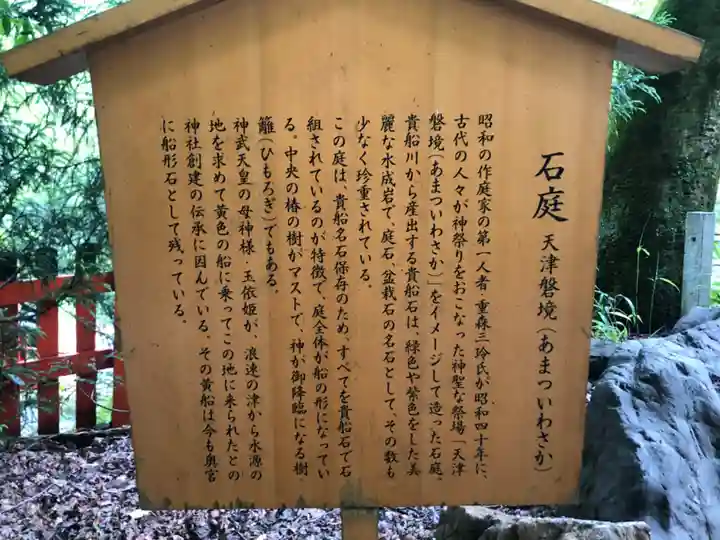 石庭 天津磐境(あまついわさか)
昭和の作庭家の第一人者・重森三玲氏が昭和四十年に、
古代の人々が神祭りをおこなった神聖な祭場「天津
磐境(あまついわさか)」をイメージして造った石庭、
貴船川から産出する貴船石は、緑色や紫色をした美
麗な水成岩で、庭石、盆栽石の名石として、その数も
少なく珍重されている。
この庭は、貴船名石保存のため、すべてを貴船石で石
組されているのが特徴で、庭全体が船の形になってい
る。中央の椿の樹がマストで、神が御降臨になる樹・
籬(ひもろぎ)でもある。
神武天皇の母神様・玉依姫が、浪速の津から水源の
地を求めて黄色の船に乗ってこの地に来られたとの
神社創建の伝承に因んでいる。その黄船は今も奥宮
に船形石として残っている。